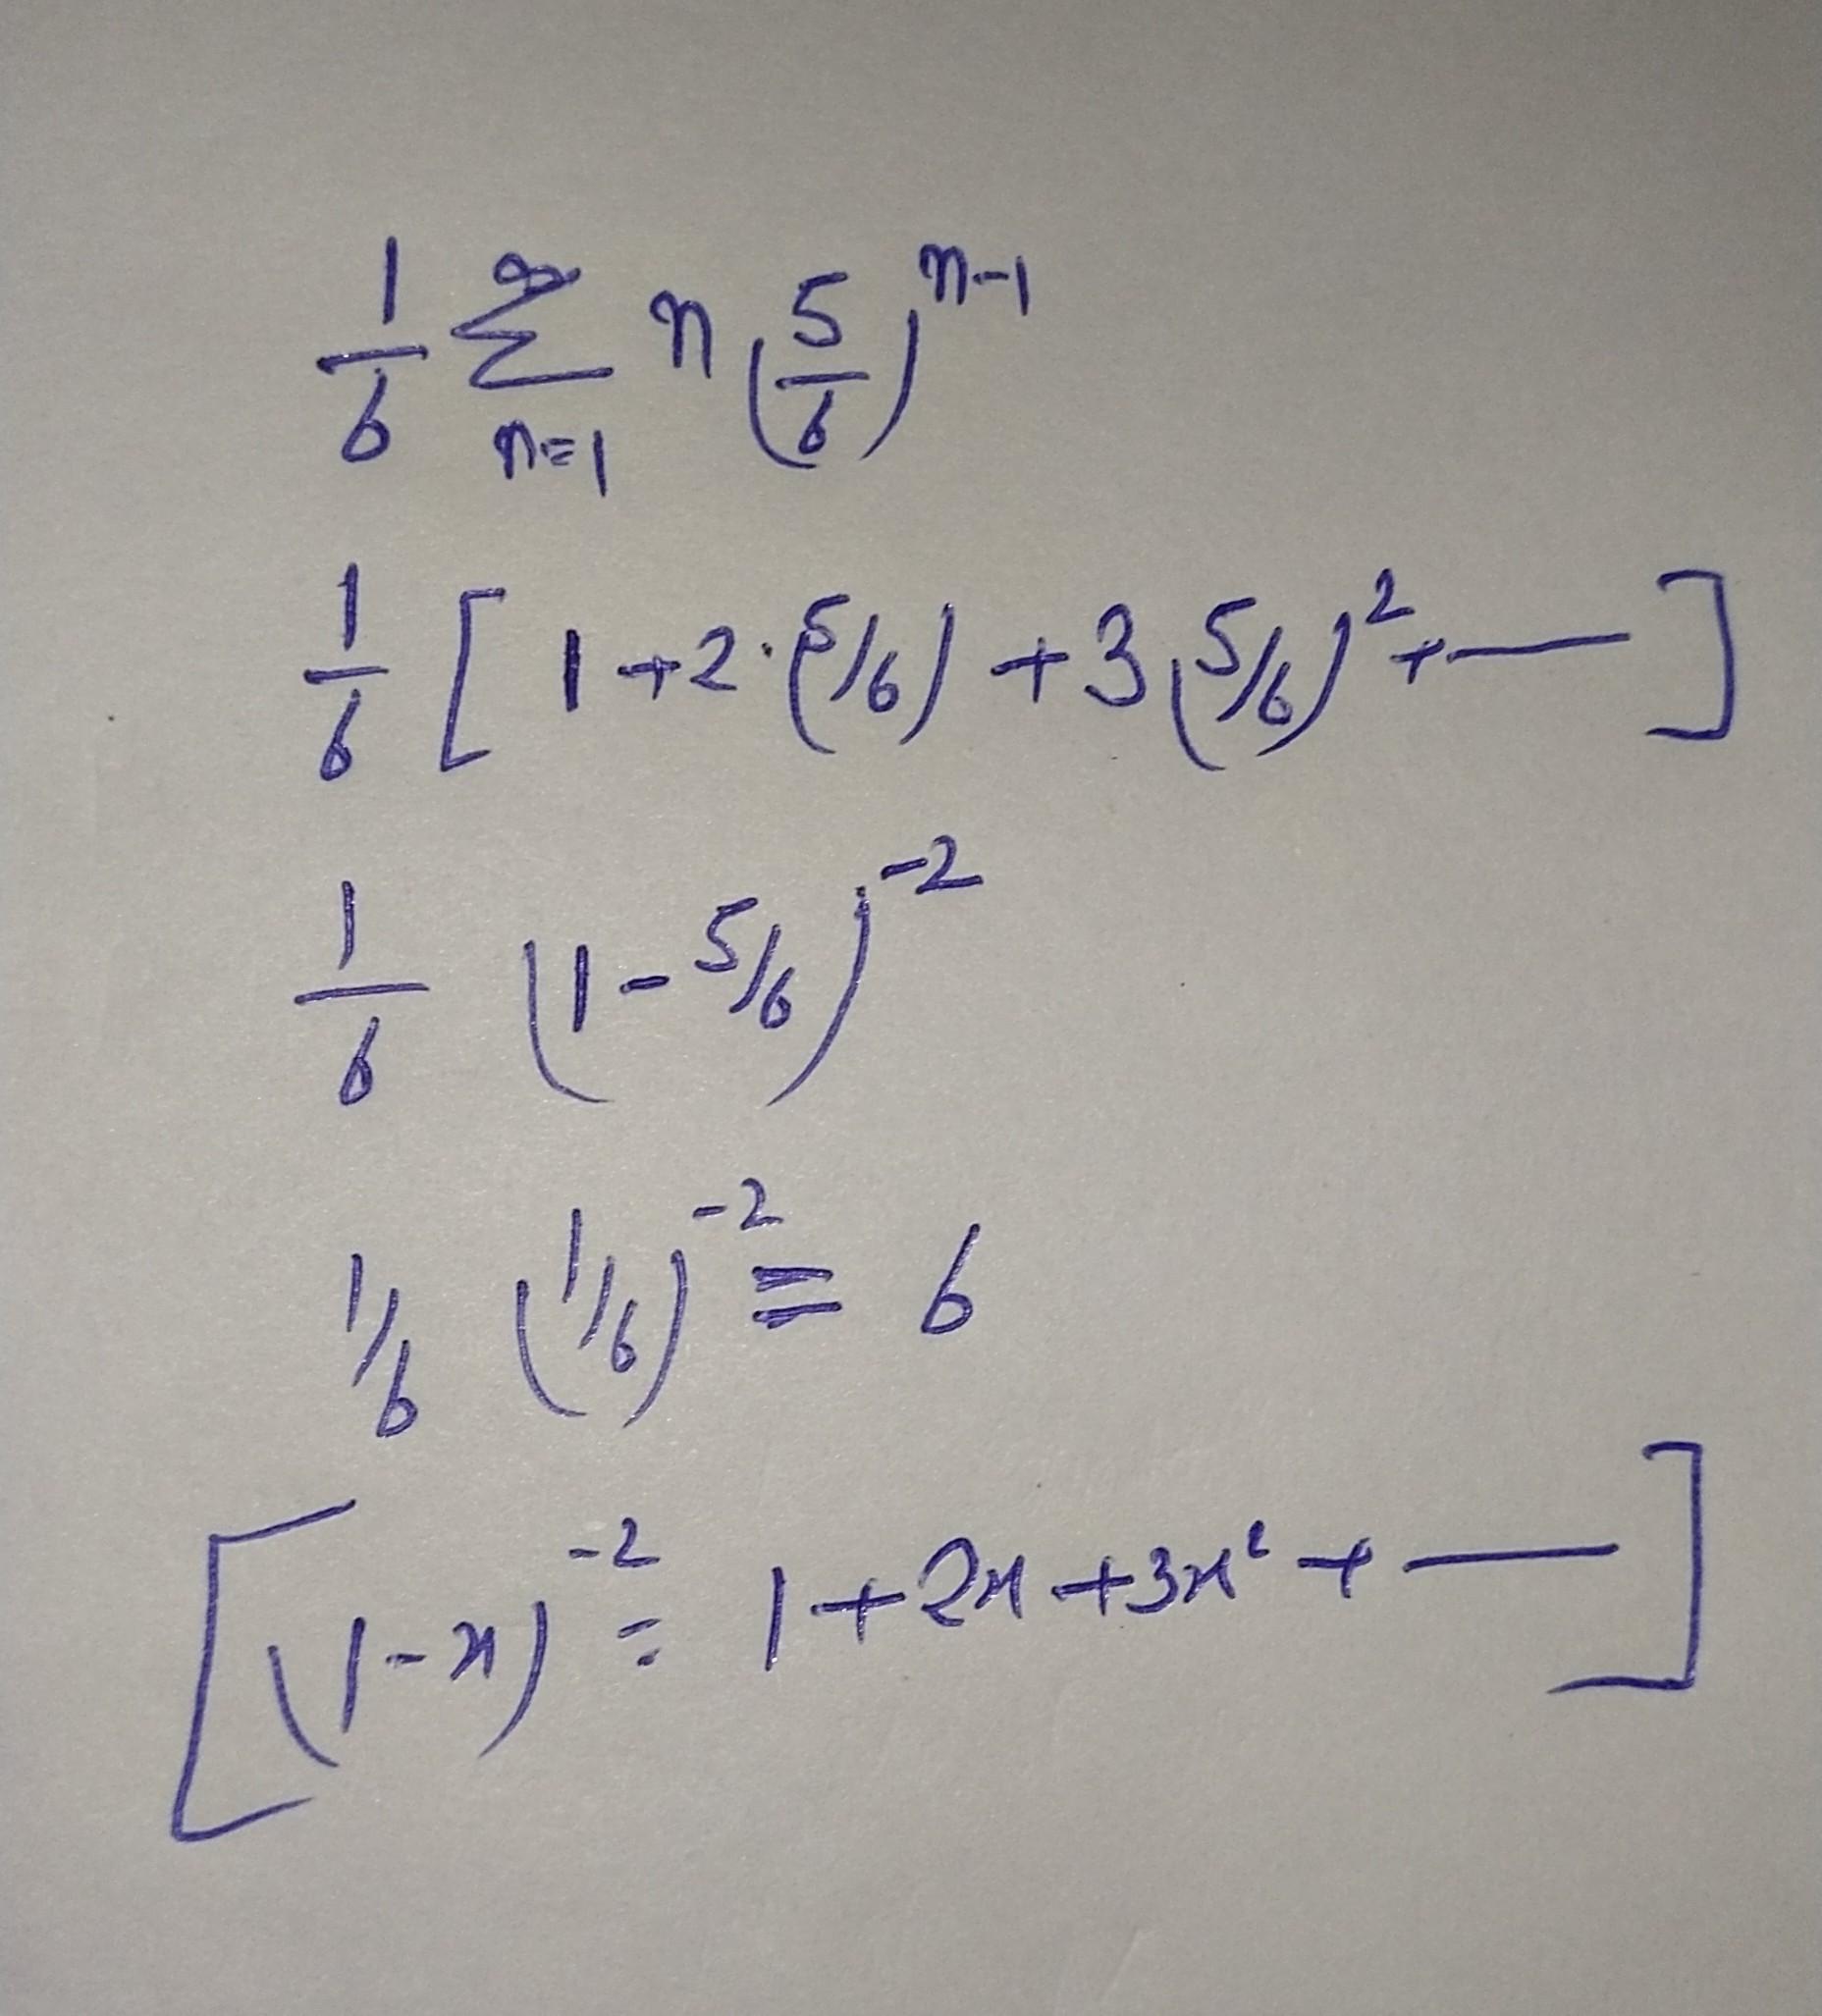 1/6 ∑_{n=1}^{∞} n (5/6)^{n-1}
1/6 [ 1 + 2·(5/6) + 3(5/6)^2 + — ]
1/6 (1 - 5/6)^{-2}
1/6 (1/6)^{-2} = 6
[ (1-x)^{-2} = 1 + 2x + 3x^2 + — ]